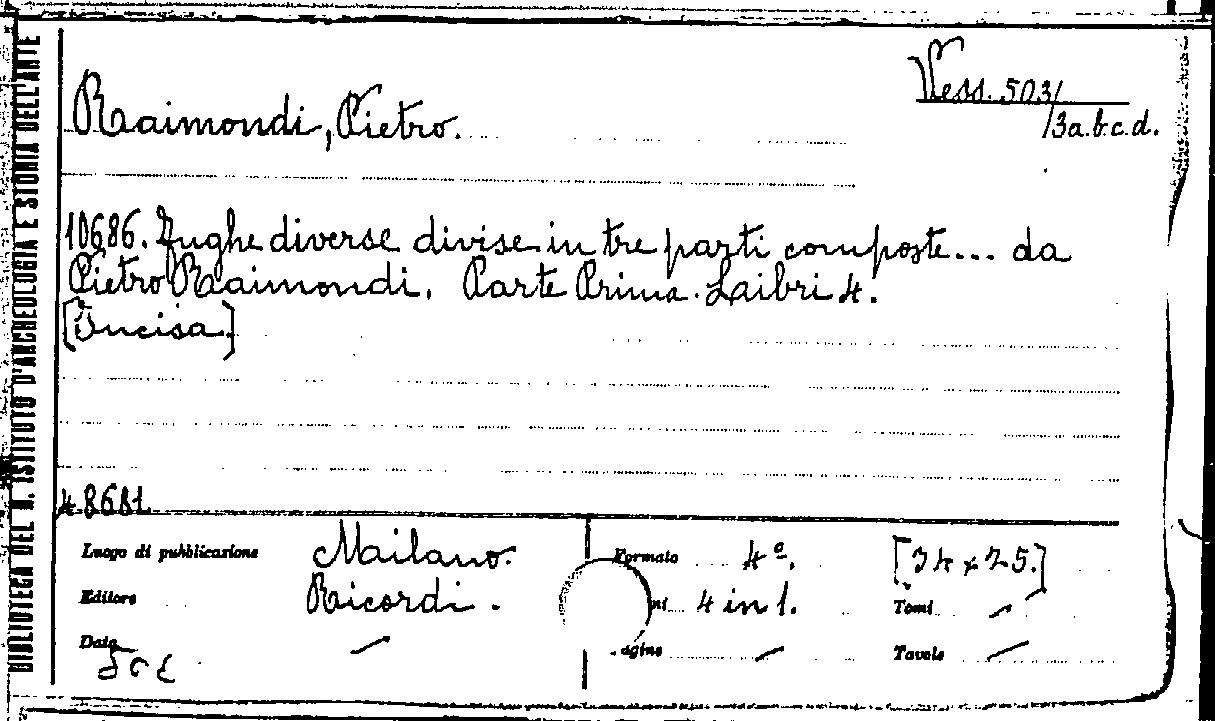 BIBLIOTECA DEL R. ISTITUTO D'ARCHEOLOGIA E STORIA DELL'ARTE
Vess. 503/
/3a.b.c.d.
Raimondi, Pietro.
10686. Fughe diverse divise in tre parti composte... da
Pietro Raimondi. Parte Prima. Libri 4.
[Incisa.]
48681
Luogo di pubblicazione Milano. Formato 4º. [34 x 25.]
Editore Ricordi. 4 in 1. Tomi /
Data / agine / Tavole /